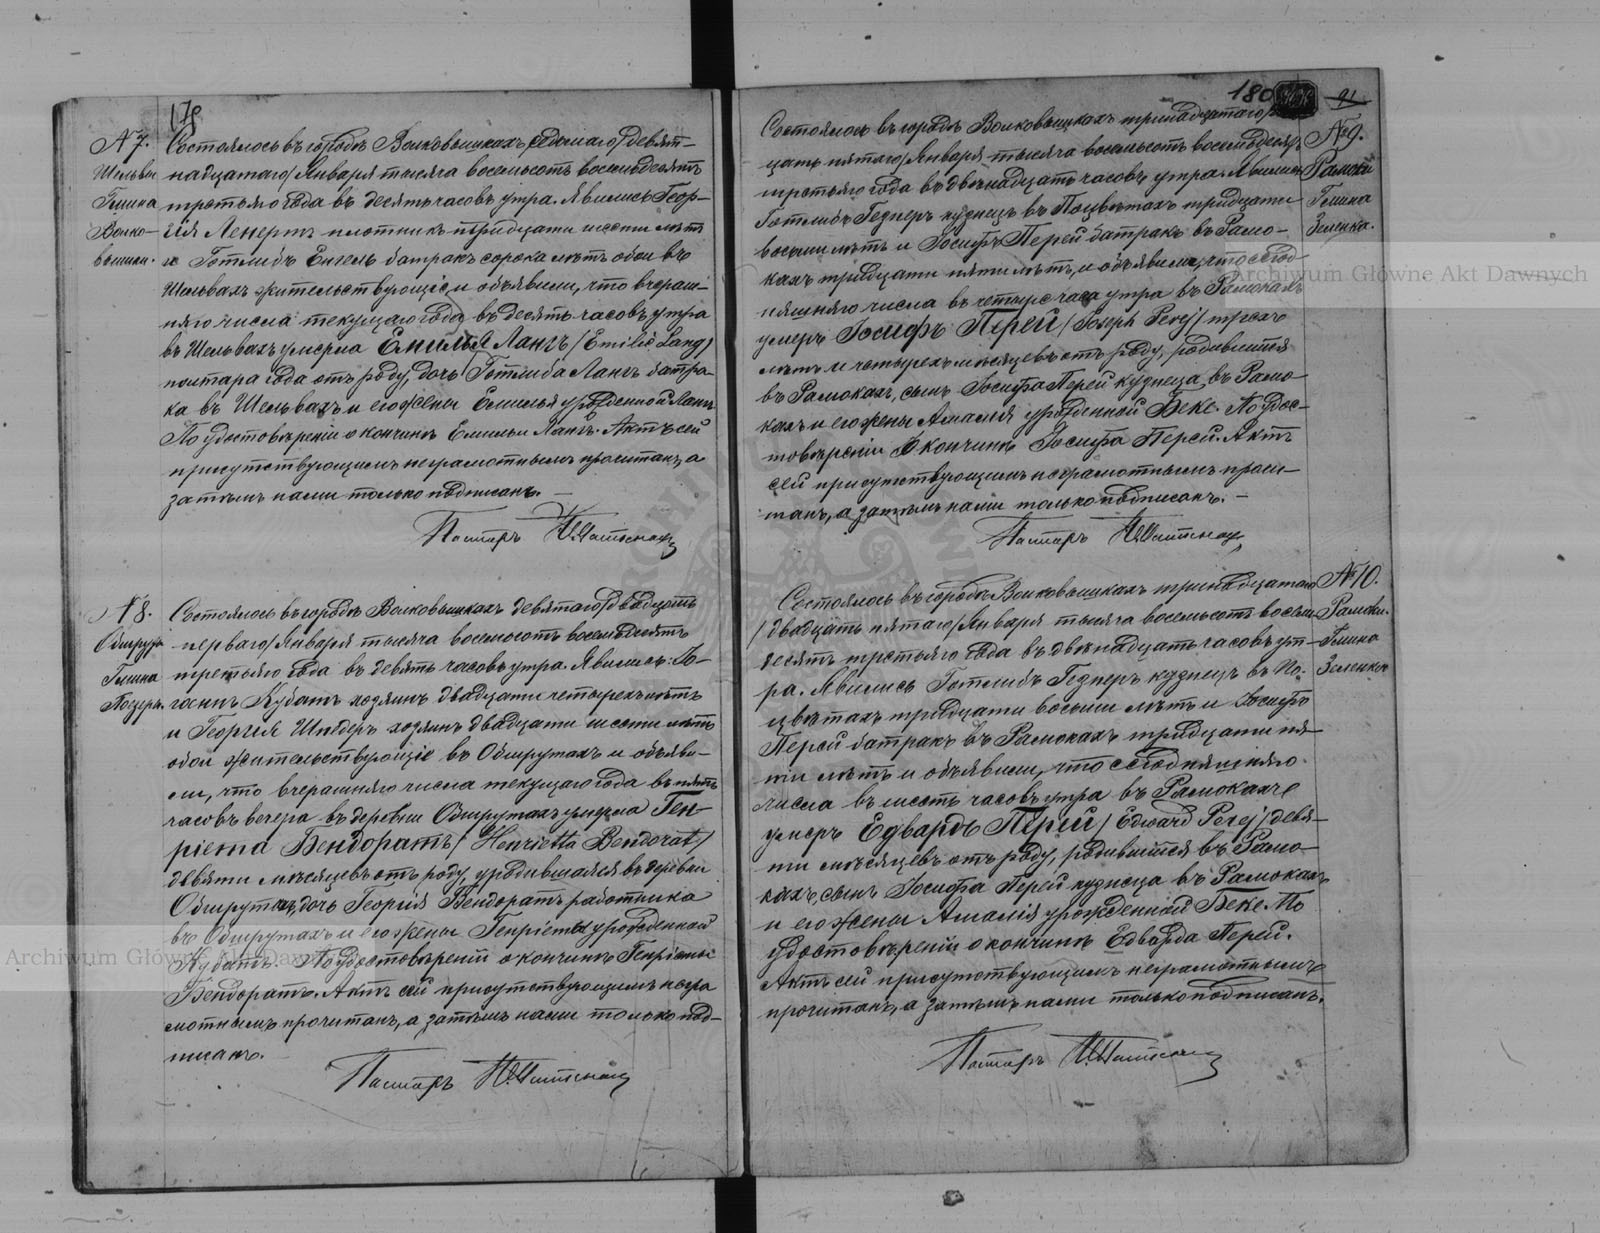 179
№ 7.
Шельвы
Гмина
Волко-
вышки.
Состоялось въ городѣ Волковышкахъ седьмаго/девят-
надцатаго/Января тысяча восемьсотъ восемьдесятъ
третьяго года въ десять часовъ утра. Явились Геор-
гій Ленертъ плотникъ тридцати шести лѣтъ
и Готлибъ Енгель батракъ сорока лѣтъ обои въ
Шельвахъ жительствующіе, и объявили, что вчераш-
няго числа текущаго года въ десять часовъ утра
въ Шельвахъ умерла Емилья Лангъ /Emilie Lang/
полтара года отъ роду, дочь Готлиба Лангъ батра-
ка въ Шельвахъ и его жены Емилья урожденной Лангъ.
По удостовѣреніи о кончинѣ Емильи Лангъ. Актъ сей
присутствующимъ неграмотнымъ прочитанъ, а
затѣмъ нами только подписанъ. —
Пасторъ
№ 8.
Обшруты
Гмина
Состоялось въ городѣ Волковышкахъ девятаго/двадцать
перваго/Января тысяча восемьсотъ восемьдесятъ
третьяго года въ девять часовъ утра. Явились: Іо-
ганъ Кубатъ хозяинъ двадцати четырехъ лѣтъ
и Георгія Шнедеръ хозяинъ двадцати шести лѣтъ
обои жительствующіе въ Обшрутахъ и объяви-
ли, что вчерашняго числа текущаго года въ пять
часовъ вечера въ деревни Обшрутахъ умерла Ген-
ріета Бендоратъ /Henrietta Bendorat/
девяти мѣсяцевъ отъ роду, уродившаяся въ деревни
Обшрутахъ, дочь Георгія Бендоратъ работника
въ Обшрутахъ и его жены Генріеты урожденной
Кубатъ. По удостовѣреній о кончинѣ Генріеты
Бендоратъ. Актъ сей присутствующимъ негра
мотнымъ прочитанъ, а затѣмъ нами только под-
писанъ.
Пасторъ
180
91
№ 9.
Рамоки
Гмина
Зеленка.
Состоялось въ городѣ Волковышкахъ тринадцатаго/двад-
цать пятаго/Января тысяча восемьсотъ восемьдесятъ
третьяго года въ двѣнадцать часовъ утра. Явились
Готлибъ Геднеръ кузнецъ въ Поцвѣтахъ тридцати
восьми лѣтъ и Іосифъ Перей батракъ въ Рамо-
кахъ тридцати пяти лѣтъ, и объявили, что сегод-
няшняго числа въ четыре часа утра въ Рамокахъ
умеръ Іосифъ Перей /Joseph Perej/ трехъ
лѣтъ и четырехъ мѣсяцевъ отъ роду, родившійся
въ Рамокахъ, сынъ Іосифа Перей кузнеца въ Рамо
кахъ и его жены Амалія урожденной Беке. По удос-
товѣреніи о кончинѣ Іосифа Перей. Актъ
сей присутствующимъ неграмотнымъ прочи-
танъ, а затѣмъ нами только подписанъ. —
Пасторъ
№ 10.
Рамоки.
Гмина
Зеленка
Состоялось въ городѣ Волковышкахъ тринадцатаго
/двадцать пятаго/Января тысяча восемьсотъ восемь
десятъ третьяго года въ двѣнадцать часовъ ут-
ра. Явились Готлибъ Геднеръ кузнецъ въ По-
цвѣтахъ тридцати восьми лѣтъ и Іосифъ
Перей батракъ въ Рамокахъ тридцати пя-
ти лѣтъ и объявили, что сегодняшняго
числа въ шесть часовъ утра въ Рамокахъ
умеръ Едвардъ Перей /Edward Perej/ девя-
ти мѣсяцевъ отъ роду, родившійся въ Рамо-
кахъ, сынъ Іосифа Перей кузнеца въ Рамокахъ
и его жены Амалія урожденной Беке. По
удостовѣреніи о кончинѣ Едварда Перей.
Актъ сей присутствующимъ неграмотнымъ
прочитанъ, а затѣмъ нами только подписанъ.
Пасторъ
Archiwum Główne Akt Dawnych
Archiwum Główne Akt Dawnych